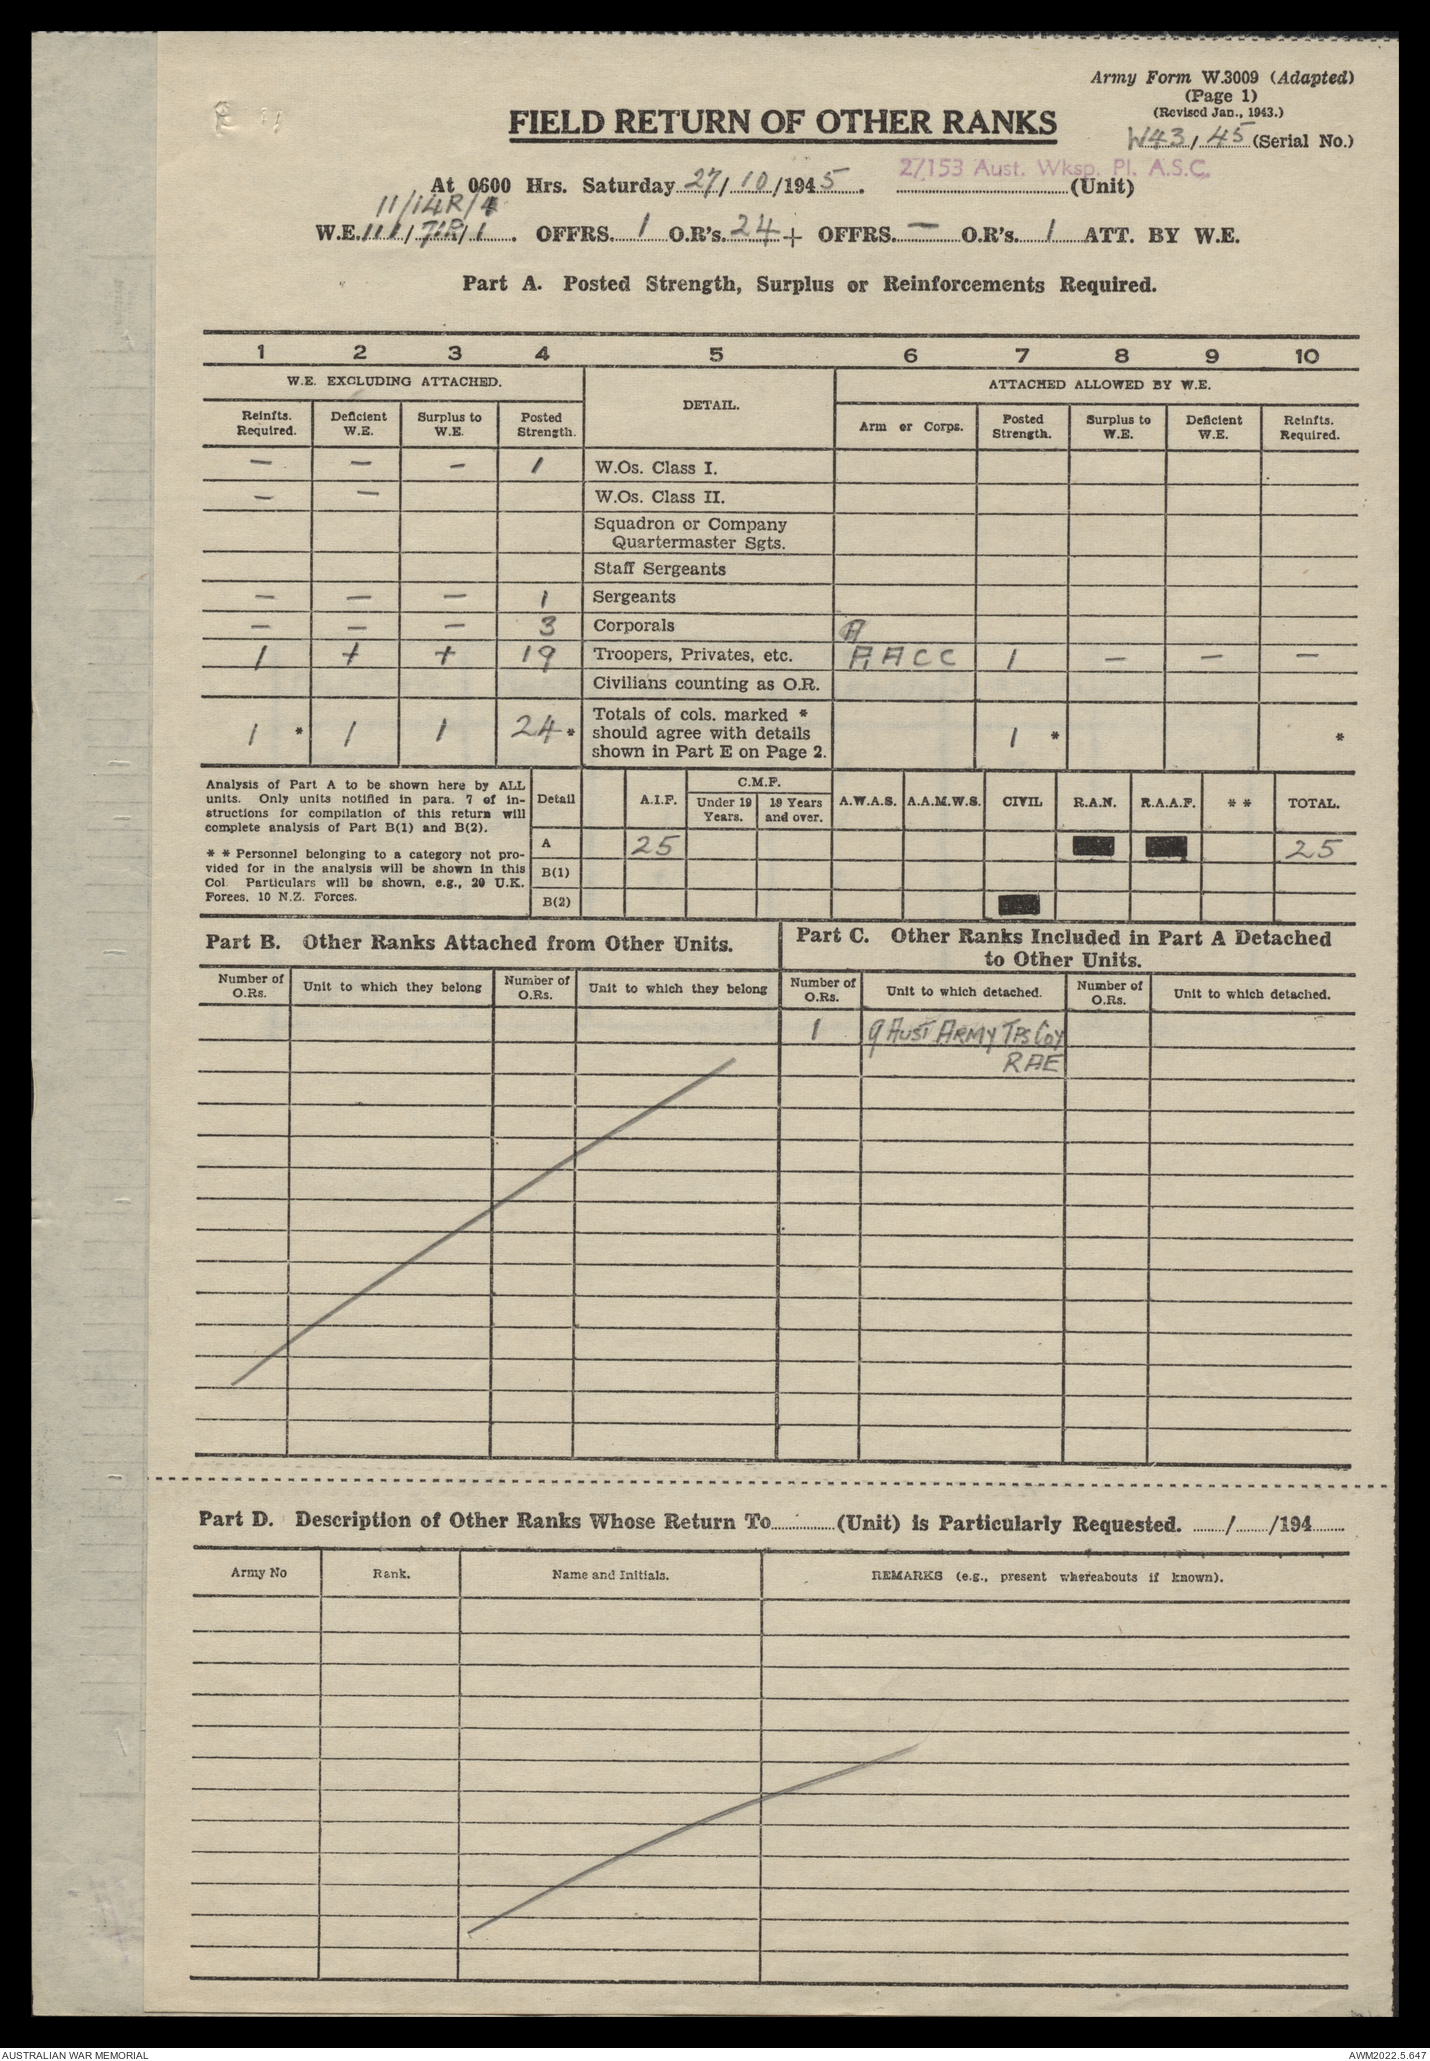 Army Form W.3009 (Adapted)
(Page 1)
(Revised Jan., 1943.)
W43/45 (Serial No.)
FIELD RETURN OF OTHER RANKS
27/153 Aust. Wksp. Pl. A.S.C.
At 0600 Hrs. Saturday 27/10/1945. (Unit)
11/14R/4
W.E. OFFRS. 1 O.R's. 24 + OFFRS. — O.R's. 1 ATT. BY W.E.
Part A. Posted Strength, Surplus or Reinforcements Required.
1 2 3 4 5 6 7 8 9 10
W.E. EXCLUDING ATTACHED. DETAIL. ATTACHED ALLOWED BY W.E.
Reinfts. Required. Deficient W.E. Surplus to W.E. Posted Strength. Arm or Corps. Posted Strength. Surplus to W.E. Deficient W.E. Reinfts. Required.
— — — 1 W.Os. Class I.
— — W.Os. Class II.
Squadron or Company
Quartermaster Sgts.
Staff Sergeants
— — — 1 Sergeants
— — — 3 Corporals A
1 + + 19 Troopers, Privates, etc. AACC 1 — — —
Civilians counting as O.R.
1 * 1 1 24 * Totals of cols. marked *
should agree with details
shown in Part E on Page 2. 1 * *
Analysis of Part A to be shown here by ALL
units. Only units notified in para. 7 of in-
structions for compilation of this return will
complete analysis of Part B(1) and B(2).
* * Personnel belonging to a category not pro-
vided for in the analysis will be shown in this
Col. Particulars will be shown, e.g., 20 U.K.
Forces, 10 N.Z. Forces.
Detail A.I.F. C.M.F. Under 19 Years. 19 Years and over. A.W.A.S. A.A.M.W.S. CIVIL R.A.N. R.A.A.F. * * TOTAL.
A 25 25
B(1)
B(2)
Part B. Other Ranks Attached from Other Units.
Part C. Other Ranks Included in Part A Detached
to Other Units.
Number of O.Rs. Unit to which they belong Number of O.Rs. Unit to which they belong Number of O.Rs. Unit to which detached. Number of O.Rs. Unit to which detached.
1 9 AUST ARMY TPS COY
RAE
Part D. Description of Other Ranks Whose Return To............(Unit) is Particularly Requested. ....../....../194......
Army No Rank. Name and Initials. REMARKS (e.g., present whereabouts if known).
AUSTRALIAN WAR MEMORIAL AWM2022.5.647